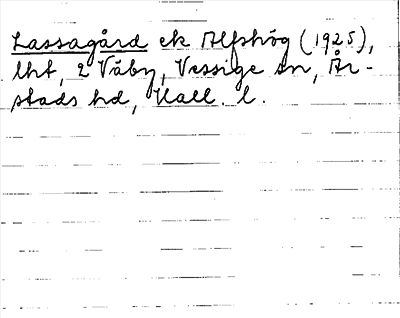 Lassagård ek Alfshög (1925),
lht, 2 Väby, Vessige sn, År-
stads hd, Hall. l.